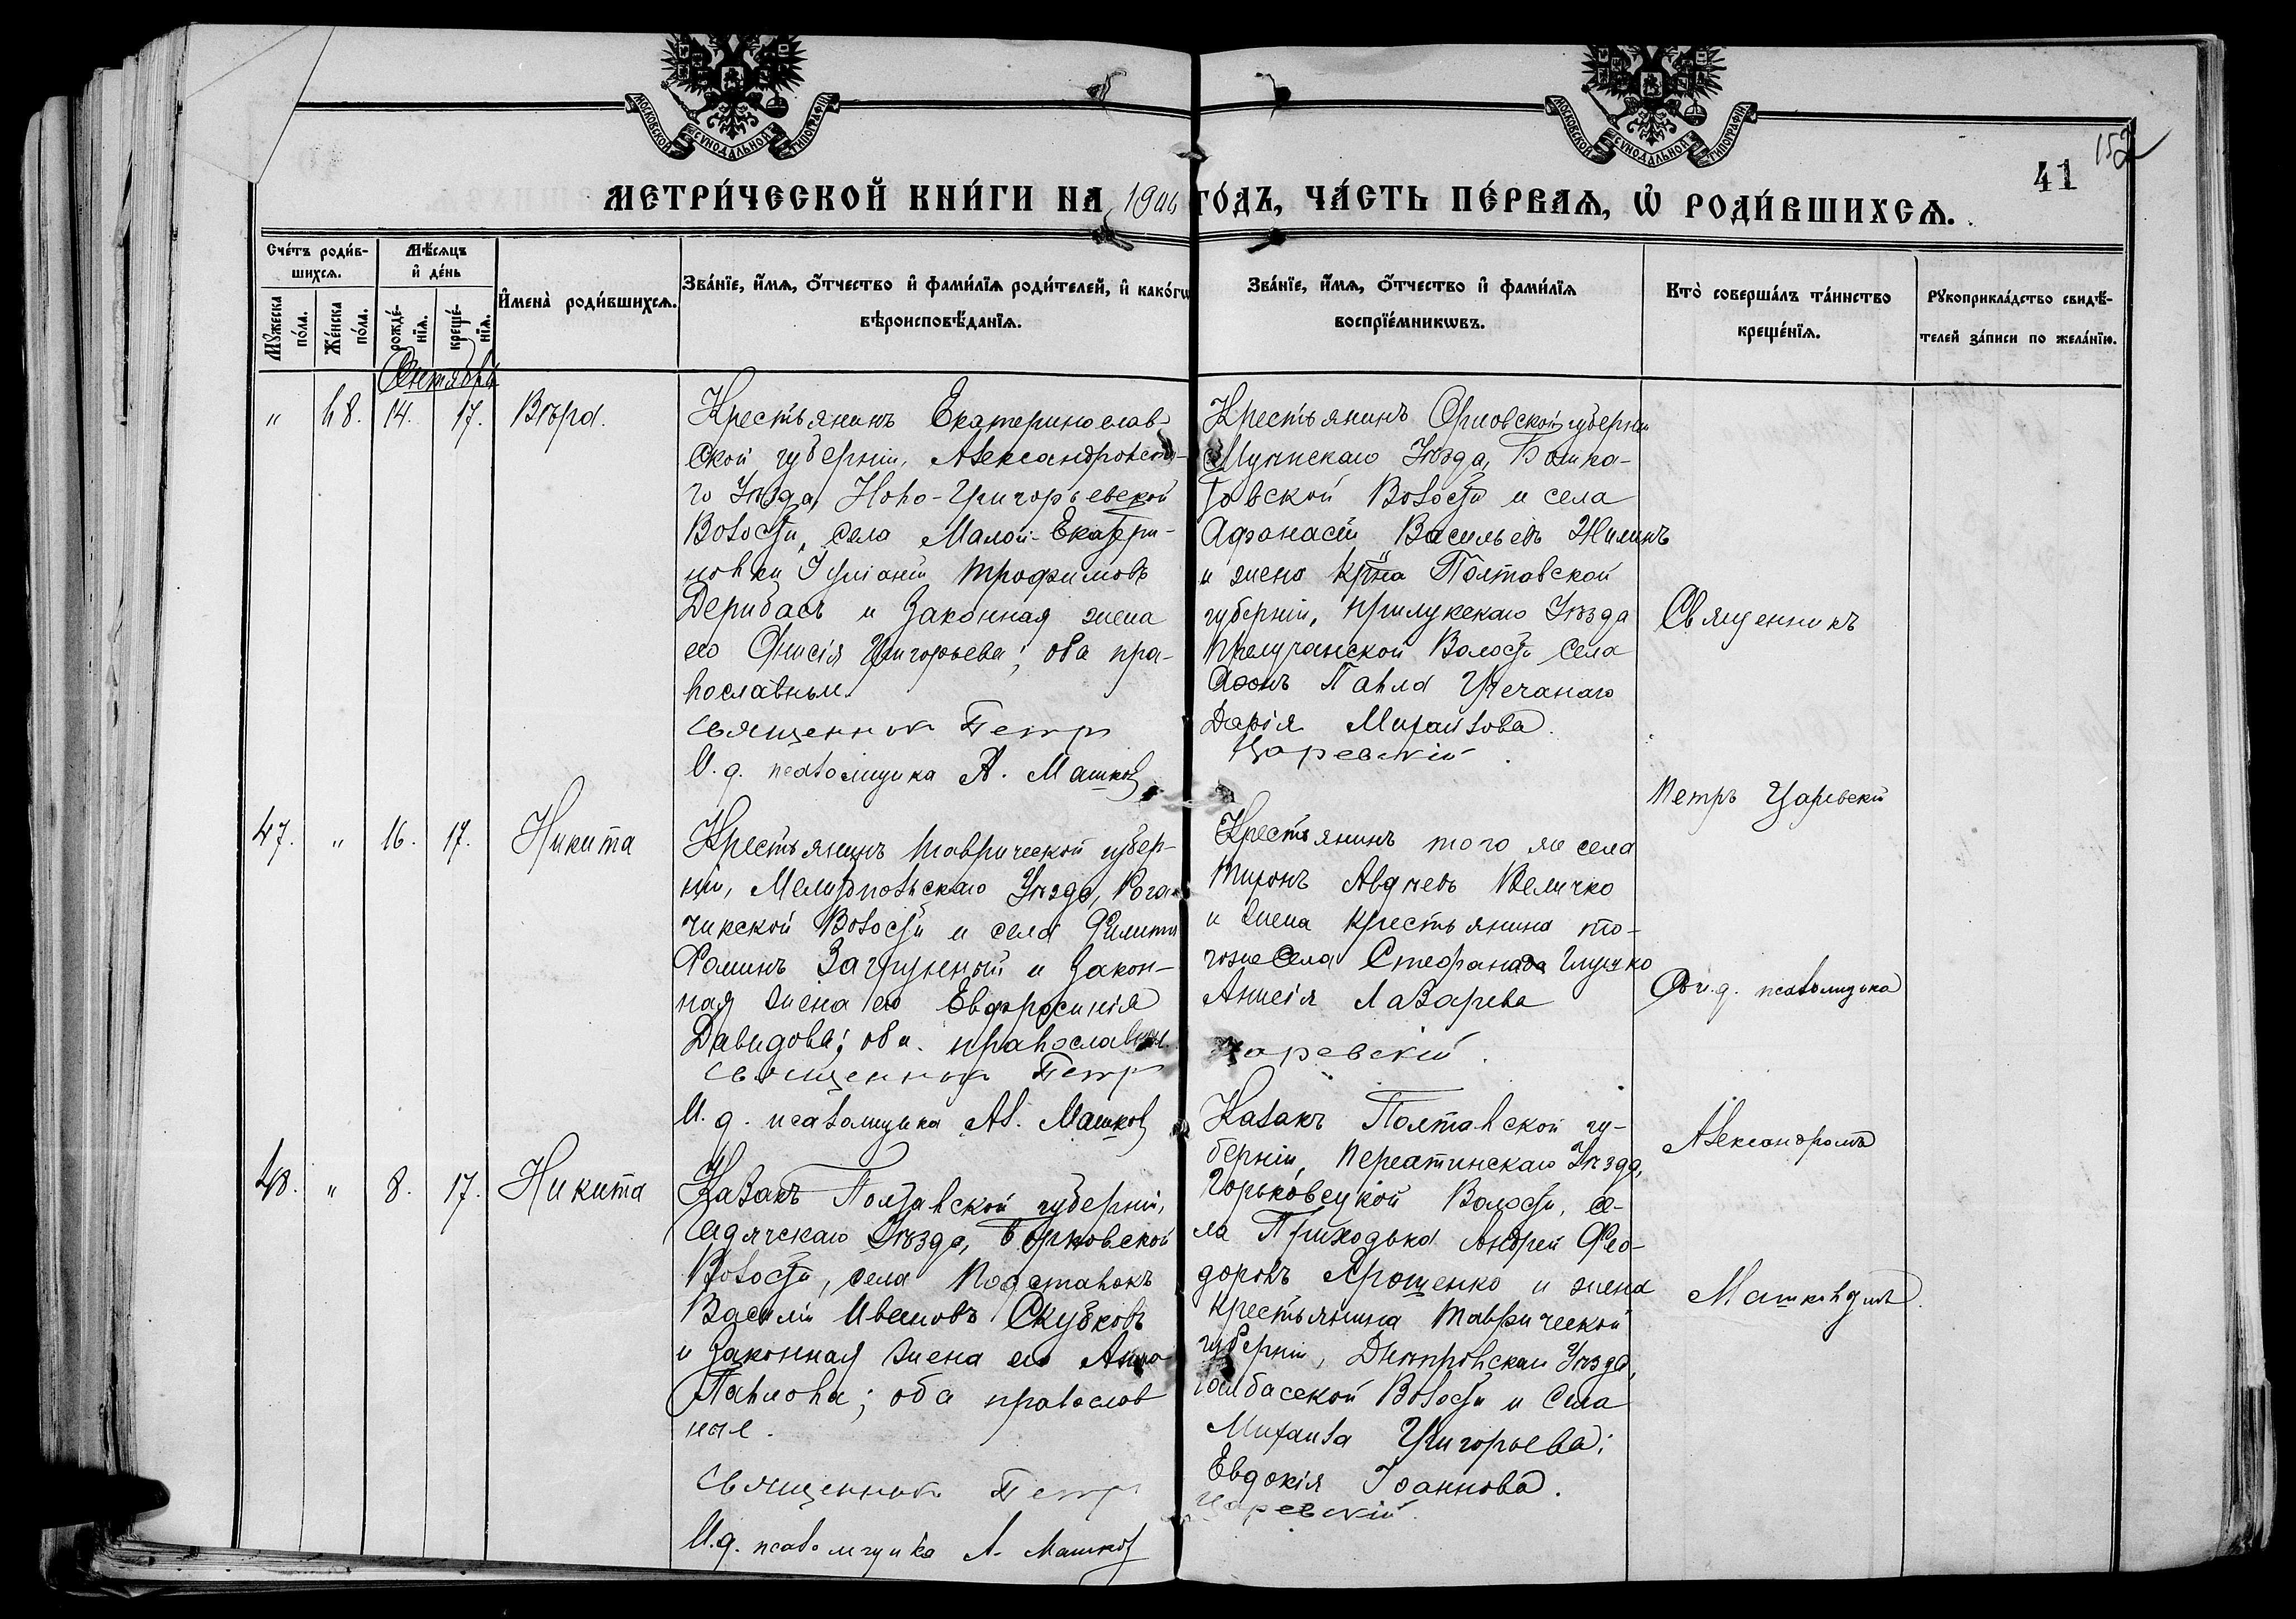 МОСКОВСКОЙ СѴНОДАЛЬНОЙ ТИПОГРАФІИ
МОСКОВСКОЙ СѴНОДАЛЬНОЙ ТИПОГРАФІИ
152
41
МЕТРИ́ЧЕСКОЙ КНИ́ГИ НА 1906 ГО́ДЪ, ЧА́СТЬ ПЕ́РВАѦ, Ѡ҆ РОДИ́ВШИХСѦ.
Сче́тъ роди́в-
шихсѧ.
Мꙋжеска по́ла.
Же́нска по́ла.
Мѣ́сѧцъ
и҆ де́нь
рожде́-
нїѧ.
креще́-
нїѧ.
И҆мена̀ роди́вшихсѧ.
Зва́нїе, и҆́мѧ, ѻ҆́тчество и҆ фами́лїѧ роди́телей, и҆ како́гѡ
вѣроисповѣ́данїѧ.
Зва́нїе, и҆́мѧ, ѻ҆́тчество и҆ фами́лїѧ
воспрїе́мникѡвъ.
Кто̀ соверша́лъ та́инство
креще́нїѧ.
Рꙋкоприкла́дство свидѣ́-
телей за́писи по жела́нїю.
" 68. 14. 17. Вѣра.
Крестьянинъ Екатеринослав-
ской губерніи, Александровска-
го Уѣзда, Ново-Григорьевской
Волости, села Малой-Екатери-
новки Трофимовъ
Дерибасъ и законная жена
его Григорьева; оба пра-
вославные.
Священник Петр
И. д. псаломщика А. Машков
Крестьянинъ Орловской губерніи
Уѣзда,
Волости и села
Афанасій Васильевъ Жилинъ
и жена Кр-на Полтавской
губерніи, Прилукскаго Уѣзда
Прилучанской Волости села
Павла Гречанаго
Дарія Михайлова.
Царевскій
Священникъ
Петръ Царевскій
47. " 16. 17. Никита
Крестьянинъ Таврической губер-
ніи, Мелитопольскаго Уѣзда, Рога-
чикской Волости и села Филиппъ
Фоминъ и Закон-
ная жена его Евфросинія
Давидова; оба православн.
Священник Петр
И. д. псаломщика Ал. Машков
Крестьянинъ того же села
Тихонъ Авдѣевъ Величко
и жена крестьянина то-
гоже села Стефана
Анисія Лазарева
Царевскій.
и. д. псаломщика
Александромъ
Машковымъ.
48. " 8. 17. Никита
Казакъ Полтавской губерніи,
Гадячскаго Уѣзда, Борковской
Волости, села Подставокъ
Василій Ивановъ Скубковъ
и Законная жена его Анна
Павлова; оба православ
ные.
Священник Петр
И. д. псаломщика А. Машков
Казакъ Полтавской гу-
берніи, Пирятинскаго Уѣзда,
Волости, се-
ла Приходька Андрей Фео-
доровъ Ярошенко и жена
крестьянина Таврической
губерніи, Днѣпровскаго Уѣзда,
Волости и Села
Михаила Григорьева;
Евдокія Іоаннова.
Царевскій.